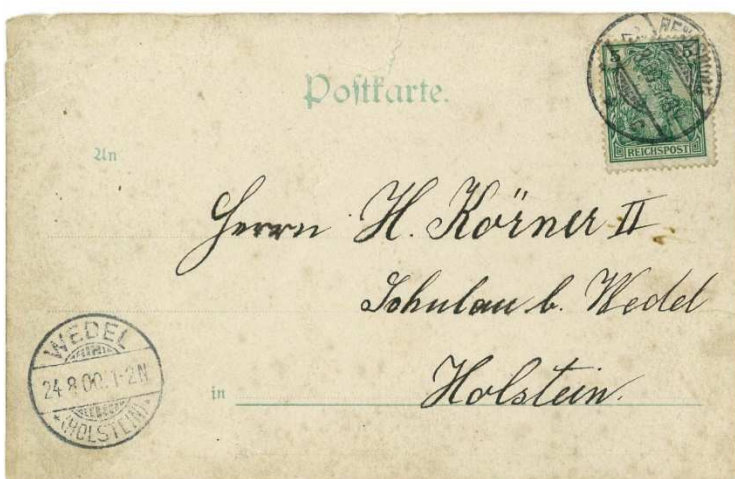 Postkarte.
5 5
REICHSPOST
An
Herrn H. Körner II
Schulau b. Wedel
in Holstein.
WEDEL
24.8.00.1-2N
(HOLSTEIN)